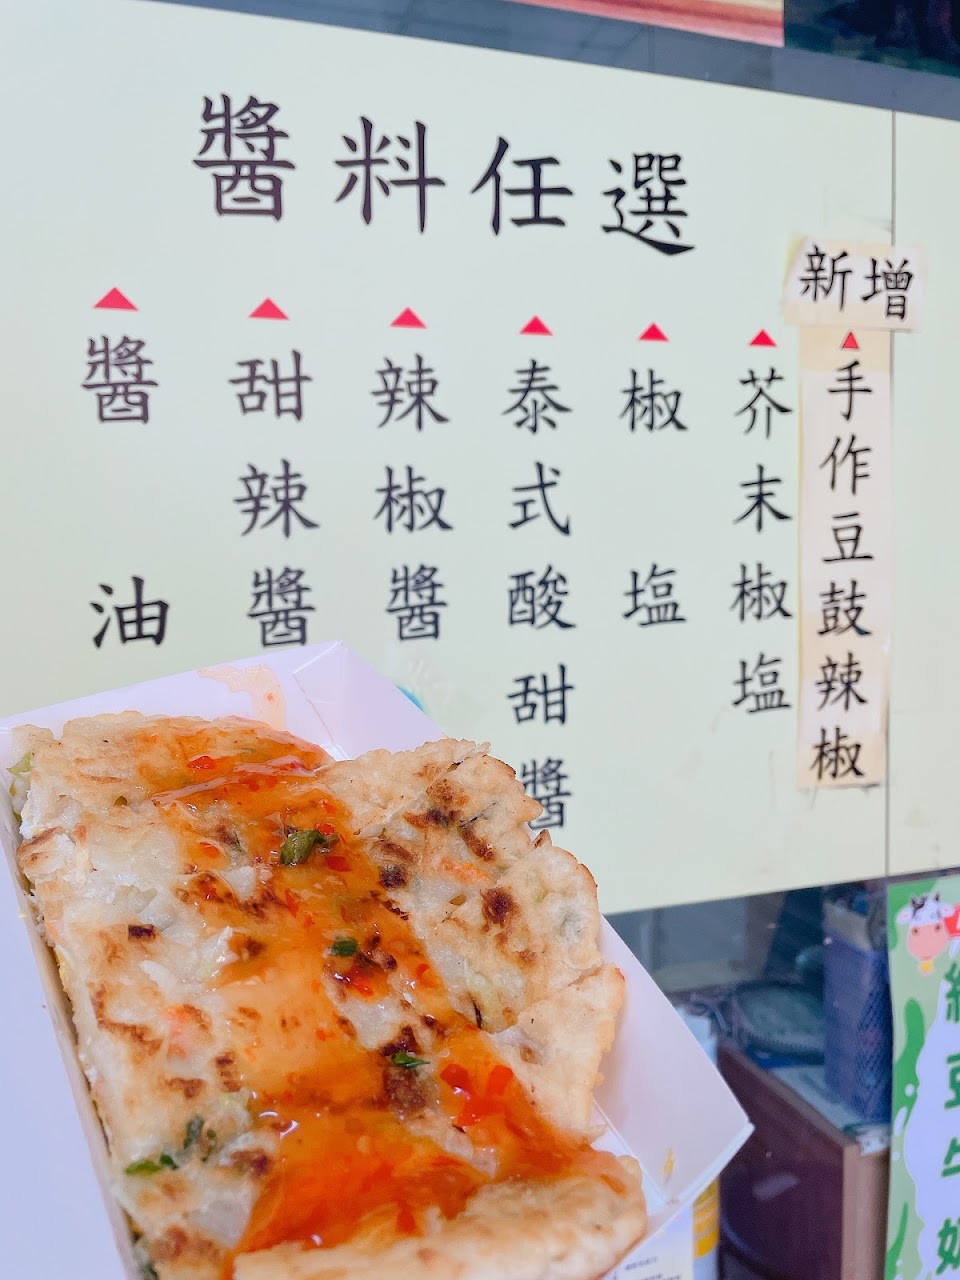 醬料任選
醬油
甜辣醬
辣椒醬
泰式酸甜醬
椒塩
芥末椒塩
新增
手作豆鼓辣椒
豆牛奶